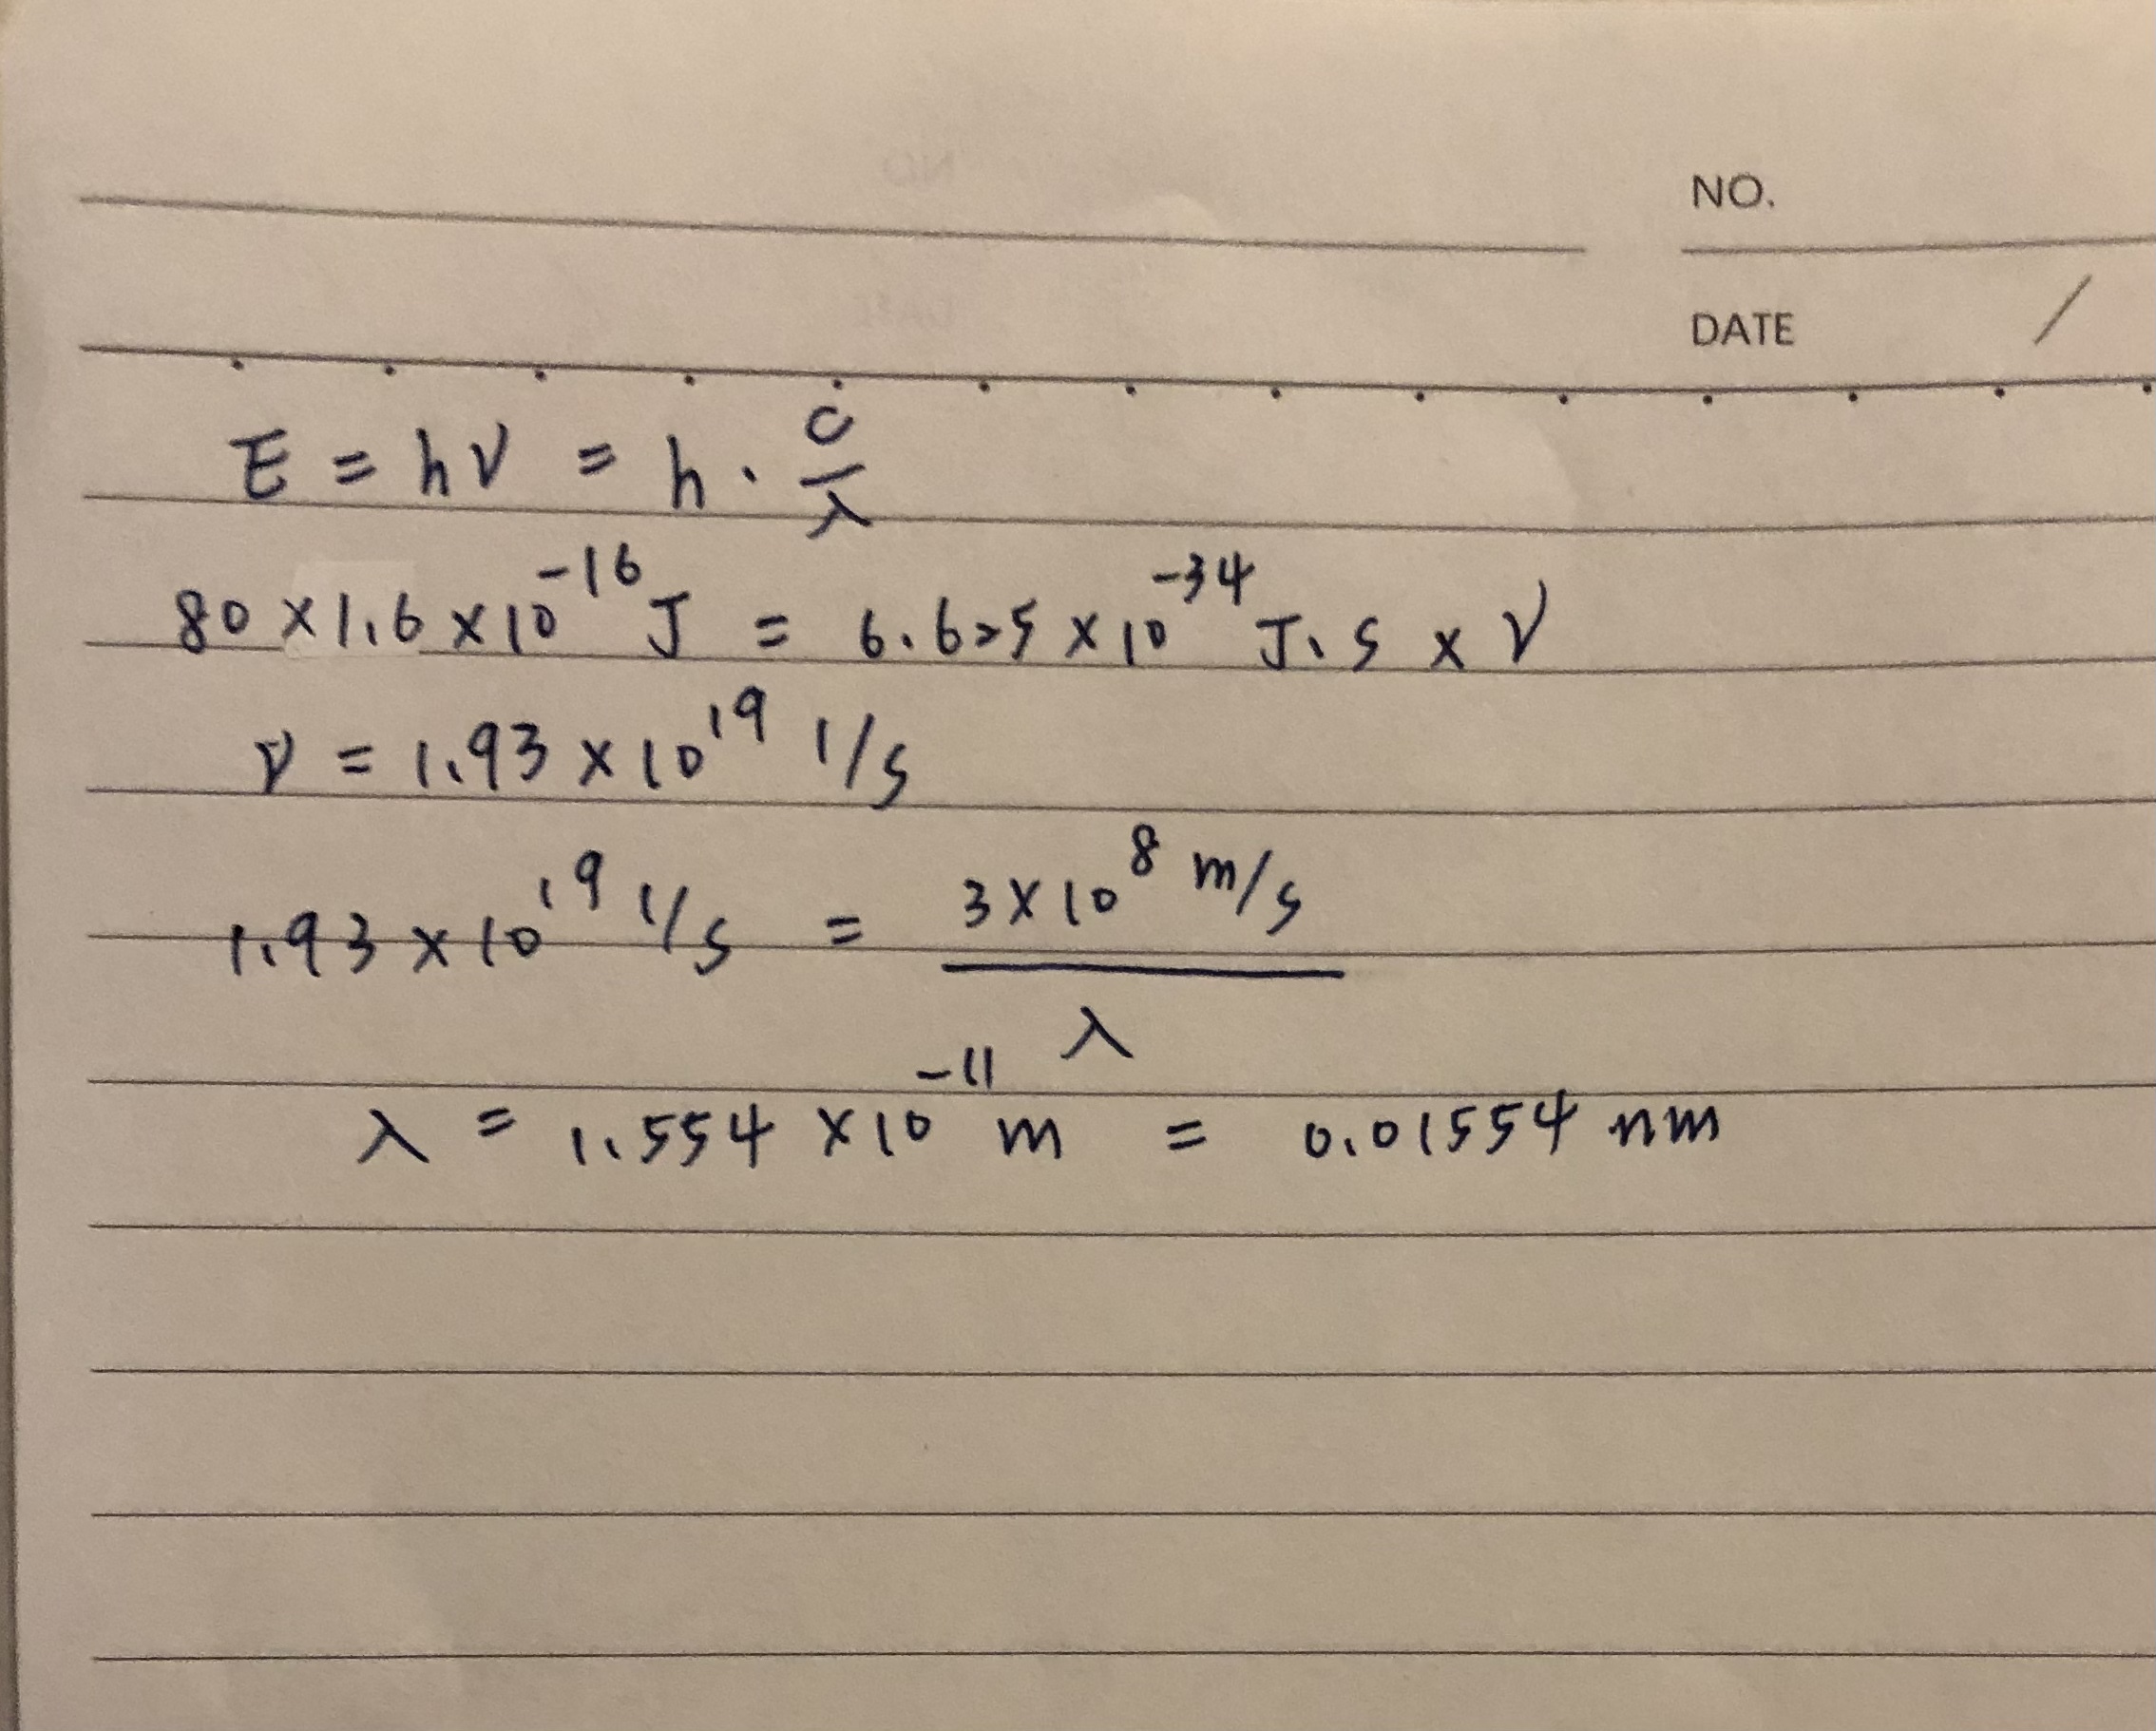 NO.
DATE /
E = hν = h · c/λ
80 × 1.6 × 10⁻¹⁶ J = 6.625 × 10⁻³⁴ J·s × ν
ν = 1.93 × 10¹⁹ 1/s
1.93 × 10¹⁹ 1/s = 3×10⁸ m/s / λ
λ = 1.554 × 10⁻¹¹ m = 0.01554 nm